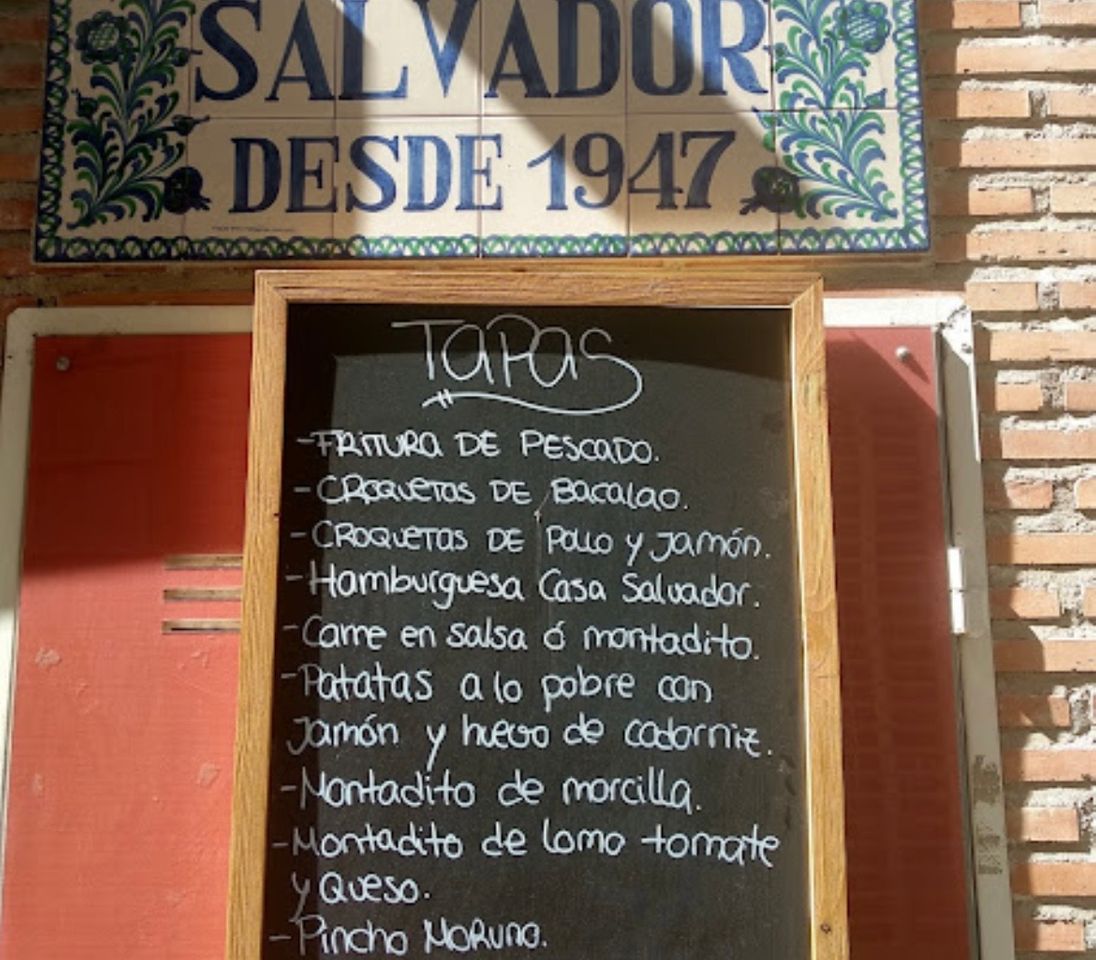 SALVADOR
DESDE 1947
TAPAS
-FRITURA DE PESCADO.
-CROQUETAS DE BACALAO.
-CROQUETAS DE POLLO Y JAMÓN.
-Hamburguesa Casa Salvador.
-Carne en salsa ó montadito.
-Patatas a lo pobre con
Jamón y huevo de codorniz.
-Montadito de morcilla.
-Montadito de lomo tomate
y Queso.
-Pincho Moruno.